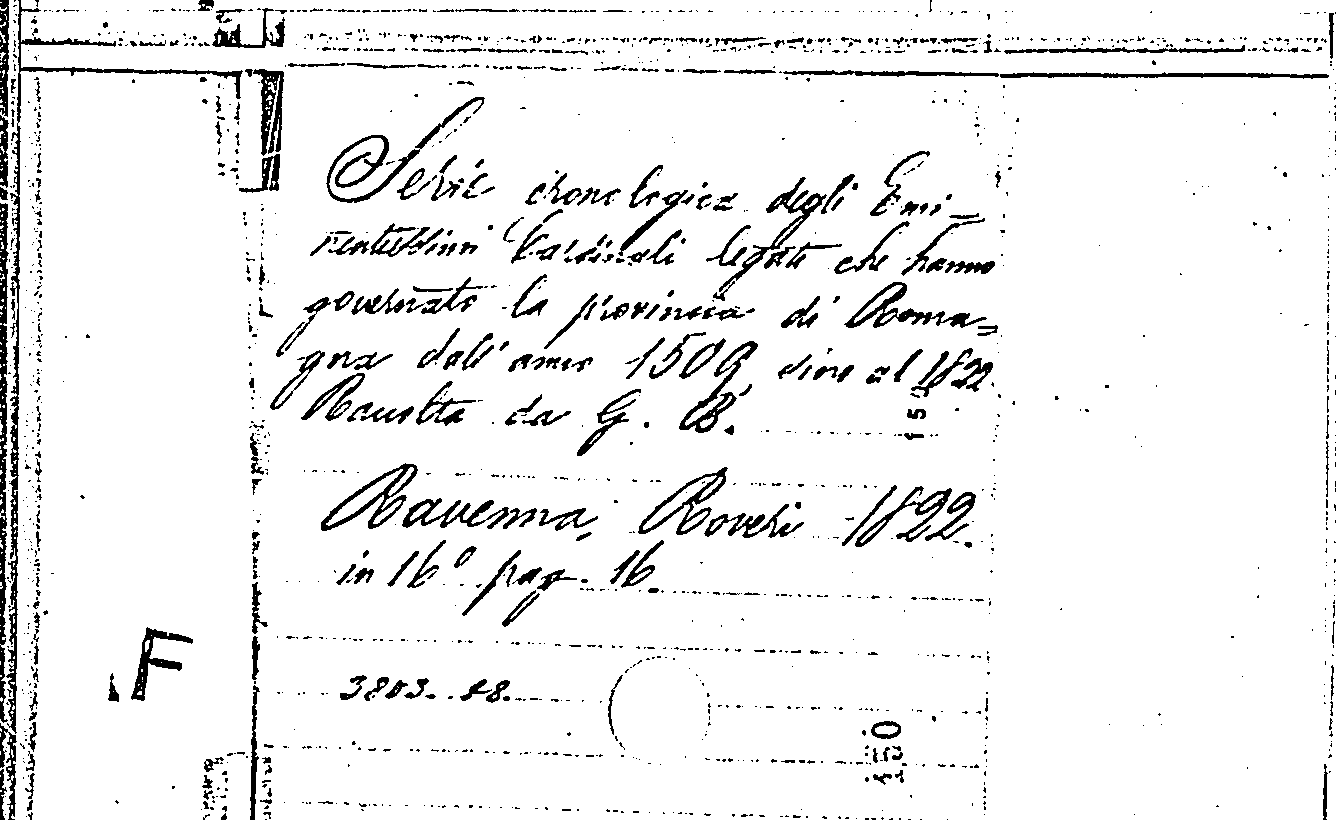 Serie cronologica degli Emi=
nentissimi Cardinali legati che hanno
governato la provincia di Roma=
gna dall'anno 1509 sino al 1822
Raccolta da G. B.
Ravenna, Roveri 1822.
in 16° pag. 16
F
3803. 28.